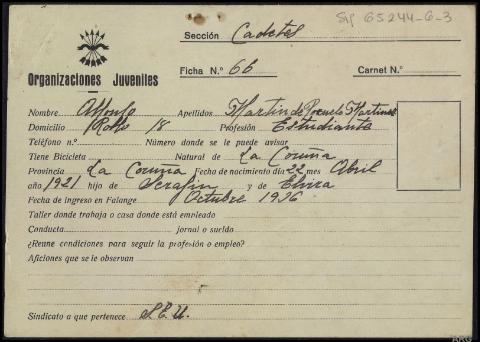 Sig 65244-6-3
Sección Cadetes
Organizaciones Juveniles
Ficha N.º 66 Carnet N.º
Nombre Alfonso Apellidos Martin de Pozuelo Martinez
Domicilio 18 Profesión Estudiante
Teléfono n.º Número donde se le puede avisar
Tiene Bicicleta Natural de La Coruña
Provincia La Coruña Fecha de nacimiento día 22 mes Abril
año 1921 hijo de Serafin y de Elvira
Fecha de ingreso en Falange Octubre 1936
Taller donde trabaja o casa donde está empleado
Conducta jornal o sueldo
¿Reune condiciones para seguir la profesión o empleo?
Aficiones que se le observan
Sindicato a que pertenece S.E.U.
ARG